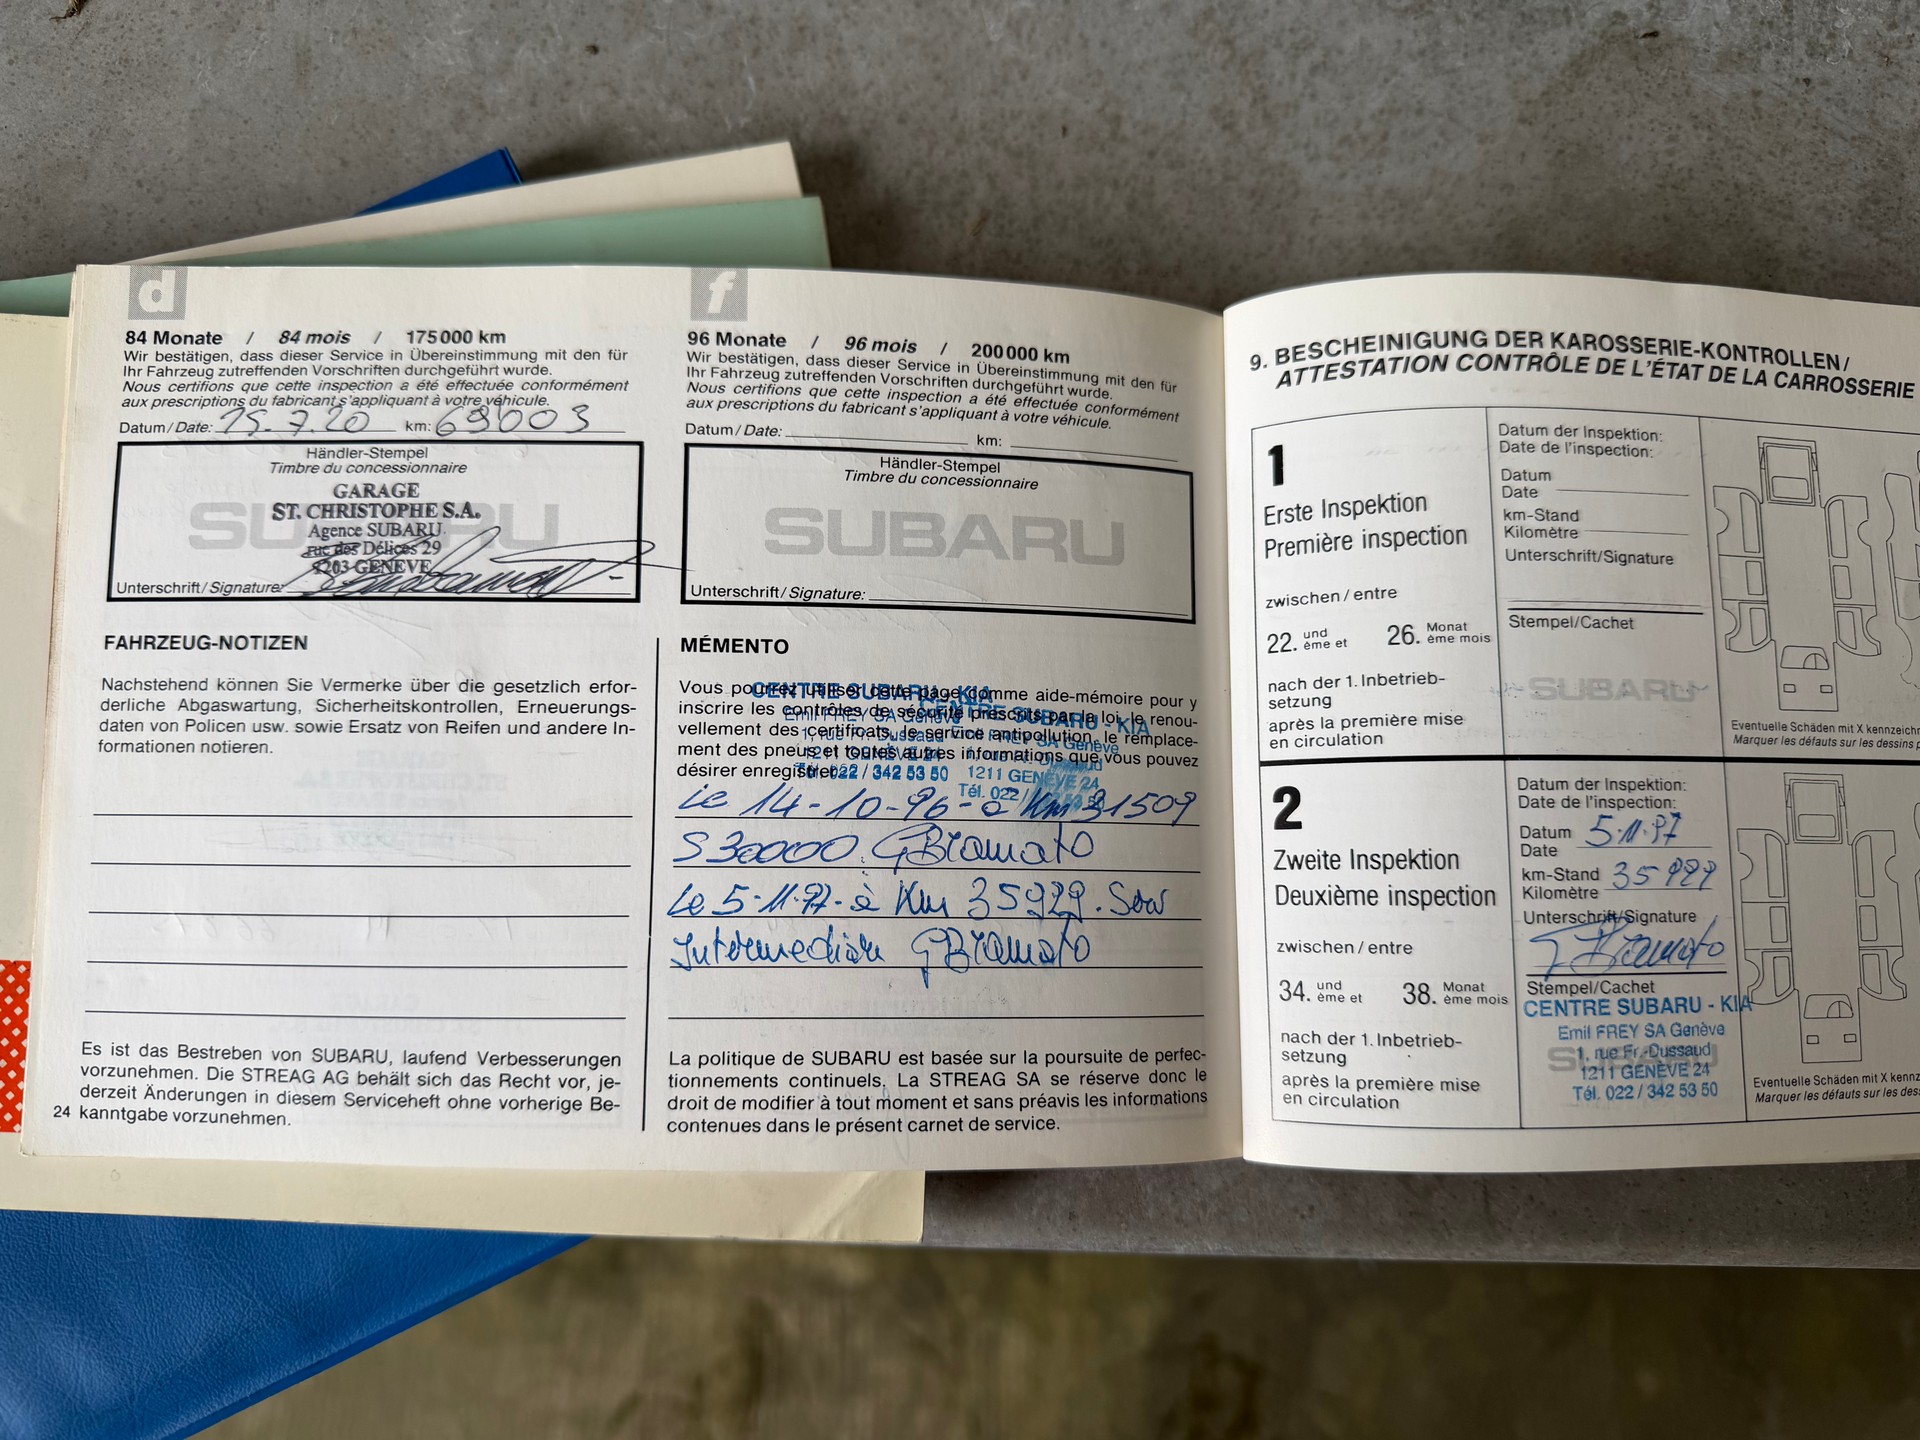 d
84 Monate / 84 mois / 175 000 km
Wir bestätigen, dass dieser Service in Übereinstimmung mit den für
Ihr Fahrzeug zutreffenden Vorschriften durchgeführt wurde.
Nous certifions que cette inspection a été effectuée conformément
aux prescriptions du fabricant s'appliquant à votre véhicule.
Datum/Date: 15.7.20 km: 69003
Händler-Stempel
Timbre du concessionnaire
SUBARU
GARAGE
ST. CHRISTOPHE S.A.
Agence SUBARU
rue des Délices 29
1203 GENEVE
Unterschrift/Signature:
FAHRZEUG-NOTIZEN
Nachstehend können Sie Vermerke über die gesetzlich erfor-
derliche Abgaswartung, Sicherheitskontrollen, Erneuerungs-
daten von Policen usw. sowie Ersatz von Reifen und andere In-
formationen notieren.
Es ist das Bestreben von SUBARU, laufend Verbesserungen
vorzunehmen. Die STREAG AG behält sich das Recht vor, je-
derzeit Änderungen in diesem Serviceheft ohne vorherige Be-
24 kanntgabe vorzunehmen.
f
96 Monate / 96 mois / 200 000 km
Wir bestätigen, dass dieser Service in Übereinstimmung mit den für
Ihr Fahrzeug zutreffenden Vorschriften durchgeführt wurde.
Nous certifions que cette inspection a été effectuée conformément
aux prescriptions du fabricant s'appliquant à votre véhicule.
Datum/Date: km:
Händler-Stempel
Timbre du concessionnaire
SUBARU
Unterschrift/Signature:
MÉMENTO
Vous pourrez utiliser cette page comme aide-mémoire pour y
inscrire les contrôles de sécurité prescrits par la loi, le renou-
vellement des certificats, le service antipollution, le remplace-
ment des pneus et toutes autres informations que vous pouvez
désirer enregistrer.
CENTRE SUBARU - KIA
Emil FREY SA Genève
1, rue Fr.-Dussaud
1211 GENÈVE 24
Tél. 022 / 342 53 50
CENTRE SUBARU - KIA
Emil FREY SA Genève
1, rue Fr.-Dussaud
1211 GENÈVE 24
Tél. 022 / 342 53 50
Le 14-10-96-à Km 31509
S 30000. GBramato
Le 5-11-97-à Km 35929. Serv
Intermediair GBramato
La politique de SUBARU est basée sur la poursuite de perfec-
tionnements continuels. La STREAG SA se réserve donc le
droit de modifier à tout moment et sans préavis les informations
contenues dans le présent carnet de service.
9. BESCHEINIGUNG DER KAROSSERIE-KONTROLLEN/
ATTESTATION CONTRÔLE DE L'ÉTAT DE LA CARROSSERIE
1
Erste Inspektion
Première inspection
zwischen/entre
22. und ème et 26. Monat ème mois
nach der 1. Inbetrieb-
setzung
après la première mise
en circulation
Datum der Inspektion:
Date de l'inspection:
Datum
Date
km-Stand
Kilomètre
Unterschrift/Signature
Stempel/Cachet
SUBARU
Eventuelle Schäden mit X kennzeich
Marquer les défauts sur les dessins p
2
Zweite Inspektion
Deuxième inspection
zwischen/entre
34. und ème et 38. Monat ème mois
nach der 1. Inbetrieb-
setzung
après la première mise
en circulation
Datum der Inspektion:
Date de l'inspection:
Datum
Date 5.11.97
km-Stand
Kilomètre 35929
Unterschrift/Signature
GBramato
Stempel/Cachet
SUBARU
CENTRE SUBARU - KIA
Emil FREY SA Genève
1, rue Fr.-Dussaud
1211 GENÈVE 24
Tél. 022 / 342 53 50
Eventuelle Schäden mit X kennz
Marquer les défauts sur les des